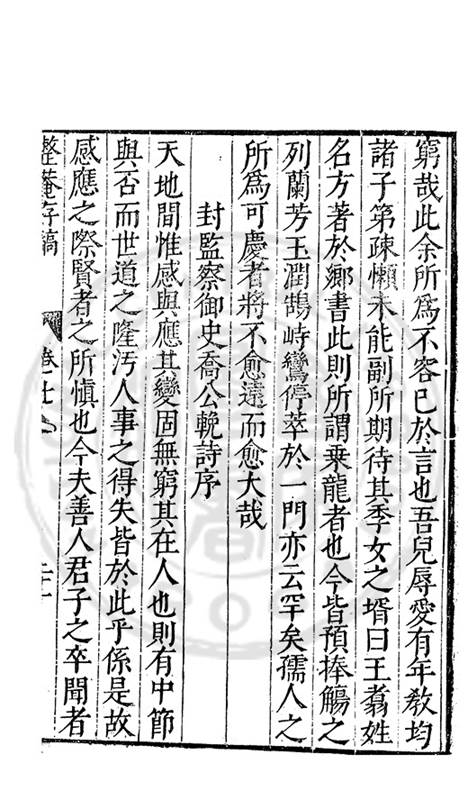 窮哉此余所爲不容已於言也吾兒辱愛有年教均
諸子第疎懶未能副所期待其季女之壻曰王翥姓
名方著於鄉書此則所謂乗龍者也今皆預捧觴之
列蘭芳玉潤鵠峙鸞停萃於一門亦云罕矣孺人之
所爲可慶者將不愈遠而愈大哉
封監察御史喬公輓詩序
天地間惟感與應其變固無窮其在人也則有中節
與否而世道之隆汚人事之得失皆於此乎係是故
感應之際賢者之所愼也今夫善人君子之卒聞者
整菴存稿 卷七